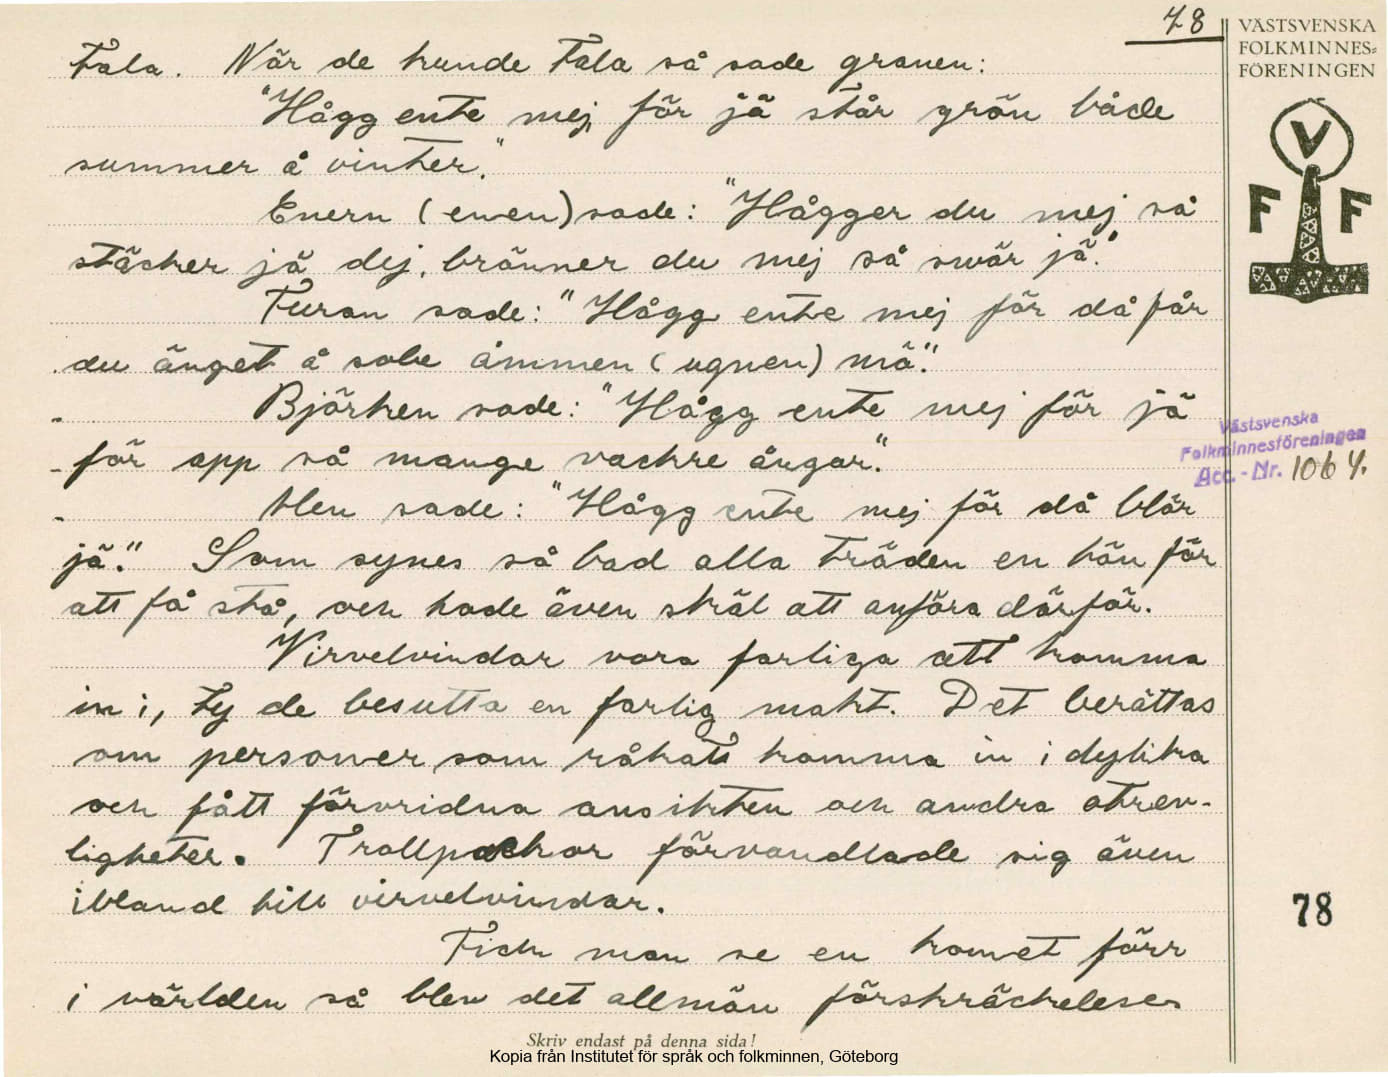 78
VÄSTSVENSKA
FOLKMINNES=
FÖRENINGEN
V
F F
tala. När de kunde tala så sade granen:
"Hågg ente mej för jä står grön både
summer å vinter."
Enern (enen) sade: "Hågger du mej så
stäcker jä dej, bränner du mej så svär jä."
Furan sade: "Hågg ente mej för då får
du änget å sobe åmmen (ugnen) mä".
Björken sade: "Hågg ente mej för jä
för app så mange vackre ångar".
Alen sade: "Hågg ente mej för då blör
jä". Som synes så bad alla träden en bön för
att få stå, och hade även skäl att anföra därför.
Virvelvindar vora farliga att komma
in i, ty de besutta en farlig makt. Det berättas
om personer som råkats komma in i dylika
och fått förvridna ansikten och andra otrev-
ligheter. Trollpackor förvandlade sig även
ibland till virvelvindar.
Fick man se en komet förr
i världen så blev det allmän förskräckelese
Västsvenska
Folkminnesföreningen
Acc.-Nr. 1064.
78
Skriv endast på denna sida!
Kopia från Institutet för språk och folkminnen, Göteborg